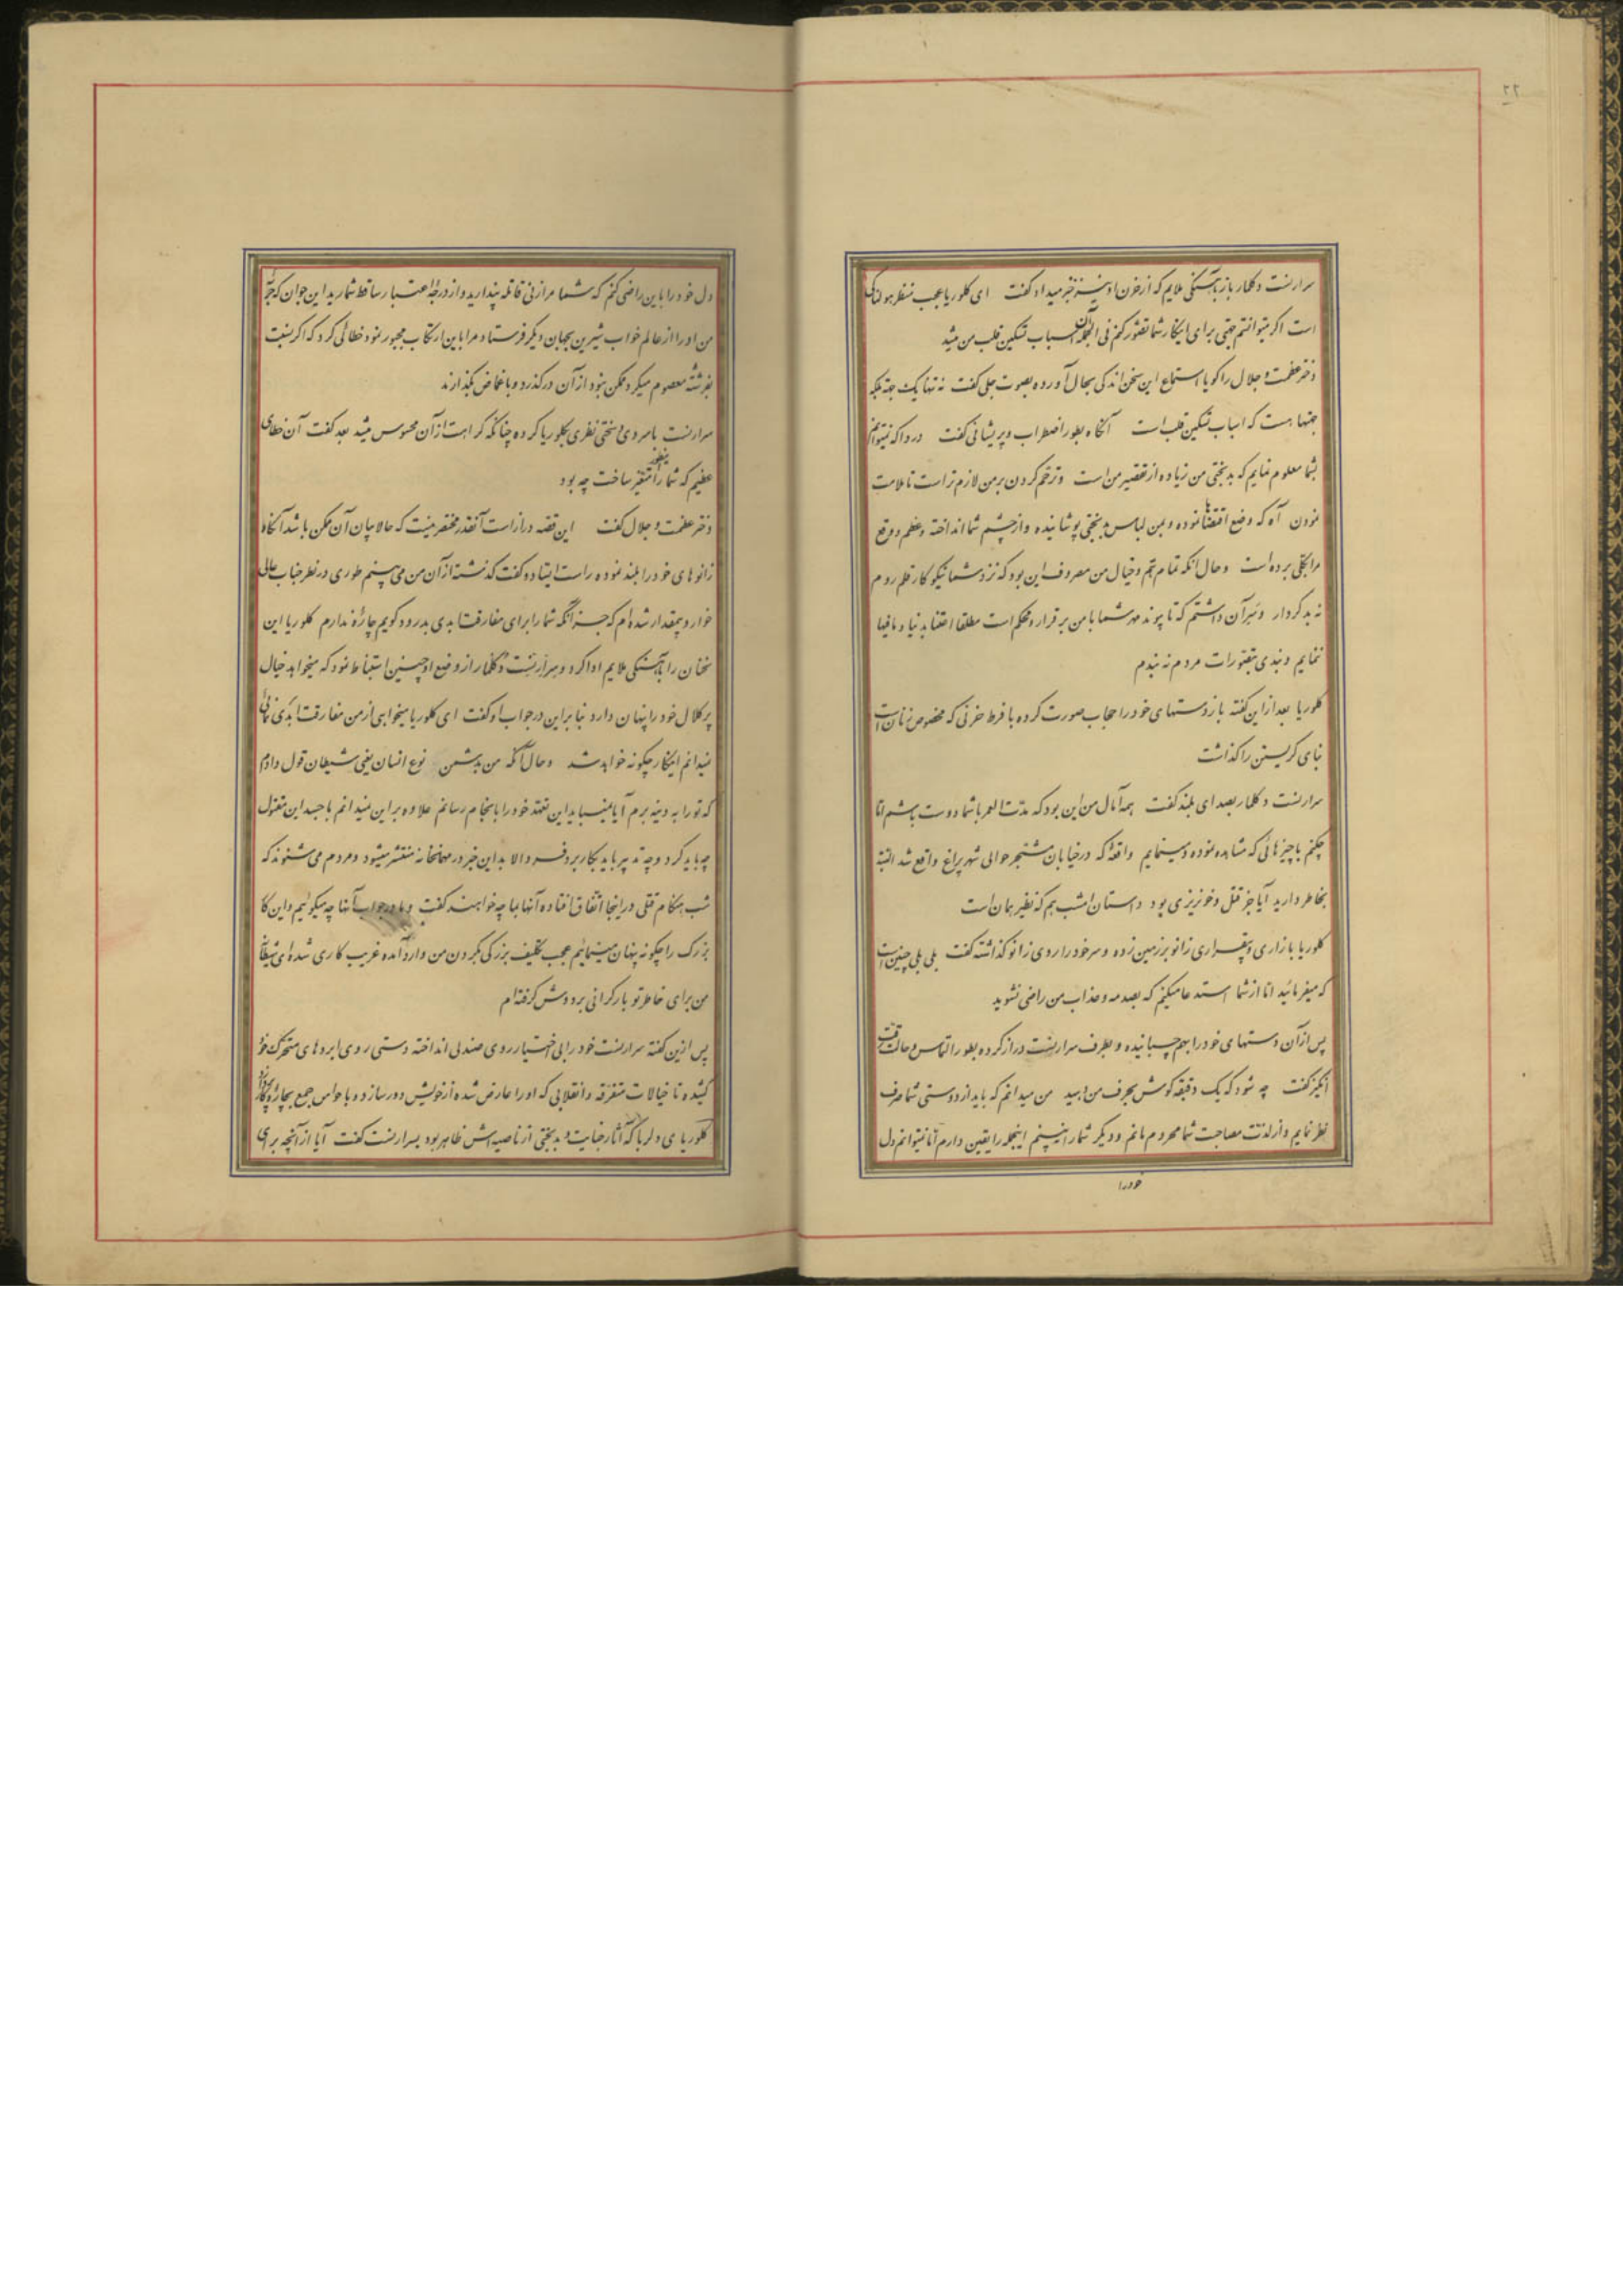 ۲۲
سرارنست دکلمار باز بآهستگی ملایم که از خون او نیز خبر میداد گفت ای کلوریا عجب منظر هولناکی
است اگر میتوانستم جهتی برای اینکار شما تصور کنم فی الجمله آن اسباب تسکین قلب من میشد
دختر عظمت و جلال را گویا استماع این سخن اندکی بحال آورده بصوت جلی گفت نه تنها یک جهة بلکه
جهتها هست که اسباب تسکین قلب است آنگاه بطور اضطراب و پریشانی گفت دردا که نمیتوانم
بشما معلوم نمایم که بدبختی من زیاده از تقصیر من است و ترحم کردن بر من لازم تر است تا ملامت
نمودن آه که وضع اقتضاها نموده و بمن لباس بدبختی پوشانیده و از چشم شما انداخته و عظم و وقع
مرا بکلی برده است و حال آنکه تمام هم و خیال من مصروف این بود که نزد شما نیکوکار قلم روم
نه بدکردار و سر آن داشتم که تا پیوند مهر شما با من برقرار و محکم است مطلقا اعتنا بدنیا و مافیها
ننمایم و بندی بتصورات مردم نه بندم
کلوریا بعد از این گفته باز دستهای خود را حجاب صورت کرده با فرط حزنی که مخصوص زنان است
بنای گریستن را گذاشت
سرارنست دکلمار بصدای بلند گفت همه آمال من این بود که مدت العمر با شما دوست باشم اما
چکنم با چیزهائی که مشاهده نموده و مینمایم واقعهٔ که در خیابان مشجر حوالی شهر پراغ واقع شد البته
بخاطر دارید آیا جز قتل و خونریزی بود داستان امشب هم که نظیر همان است
کلوریا با زاری و بیقراری زانو بر زمین زده و سر خود را روی زانو گذاشته گفت بلی بلی چنین است
که میفرمائید اما از شما استدعا میکنم که بصدمه و عذاب من راضی نشوید
پس از آن دستهای خود را بهم چسبانیده و بطرف سرارنست دراز کرده بطور التماس و حالت رقت
انگیز گفت چه شود که یک دقیقه گوش بحرف من بدهید من میدانم که باید از دوستی شما صرف
نظر نمایم و از لذت مصاحبت شما محروم مانم و دیگر شما را نبینم اینجمله را یقین دارم اما نمیتوانم دل
خود را
دل خود را باین راضی کنم که شما مرا زنی قاتله پندارید و از درجهٔ اعتبار ساقط شمارید این جوان که خنجر
من او را از عالم خواب شیرین بجهان دیگر فرستاد و مرا باین ارتکاب مجبور نمود خطائی کرد که اگر نسبت
بفرشتهٔ معصوم میکرد ممکن نبود از آن درگذرد و باغماض بگذارند
سرارنست با سردی و سختی نظری بکلوریا کرده چنانکه کراهت از آن محسوس میشد بعد گفت آن خطای
عظیم که شما را بینطور متغیر ساخت چه بود
دختر عظمت و جلال گفت این قصه دراز است آنقدر مختصر نیست که حالا بیان آن ممکن باشد آنگاه
زانوهای خود را بلند نموده راست ایستاد و گفت گذشته از آن من می بینم طوری در نظر جناب عالی
خوار و بیمقدار شده ام که جز آنکه شما را برای مفارقت ابدی بدرود گویم چارهٔ ندارم کلوریا این
سخنان را بآهستگی ملایم ادا کرد و سرارنست دکلمار از وضع او چنین استنباط نمود که میخواهد خیال
پر کلال خود را پنهان دارد بنا براین در جواب او گفت ای کلوریا میخواهی از من مفارقت ابدی نمائی
نمیدانم اینکار چگونه خواهد شد و حال آنکه من بدشمن نوع انسان یعنی شیطان قول دادم
که تو را به وینه برم آیا نمیباید این تعهد خود را بانجام رسانم علاوه بر این نمیدانم با جسد این مقتول
چه باید کرد و چه تدبیر باید بکار برد فردا لابد این خبر در مهمانخانه منتشر میشود و مردم می شنوند که
شب هنگام قتلی در اینجا اتفاق افتاده آنها بما چه خواهند گفت و ما در جواب آنها چه میگوئیم و این کار
بزرگ را چگونه پنهان مینمائیم عجب تکلیف بزرگی بگردن من وارد آمده غریب کاری شده ای شیطان
من برای خاطر تو بار گرانی بر دوش گرفته ام
پس از این گفته سرارنست خود را بی اختیار روی صندلی انداخته دستی روی ابروهای متحرک خود
کشیده تا خیالات متفرقه و انقلابی که او را عارض شده از خویش دور سازد و با حواس جمع بچارهٔ کار پردازد
کلوریای دلربا که آثار جنایت و بدبختی از ناصیه اش ظاهر بود بسرارنست گفت آیا از آنچه برای